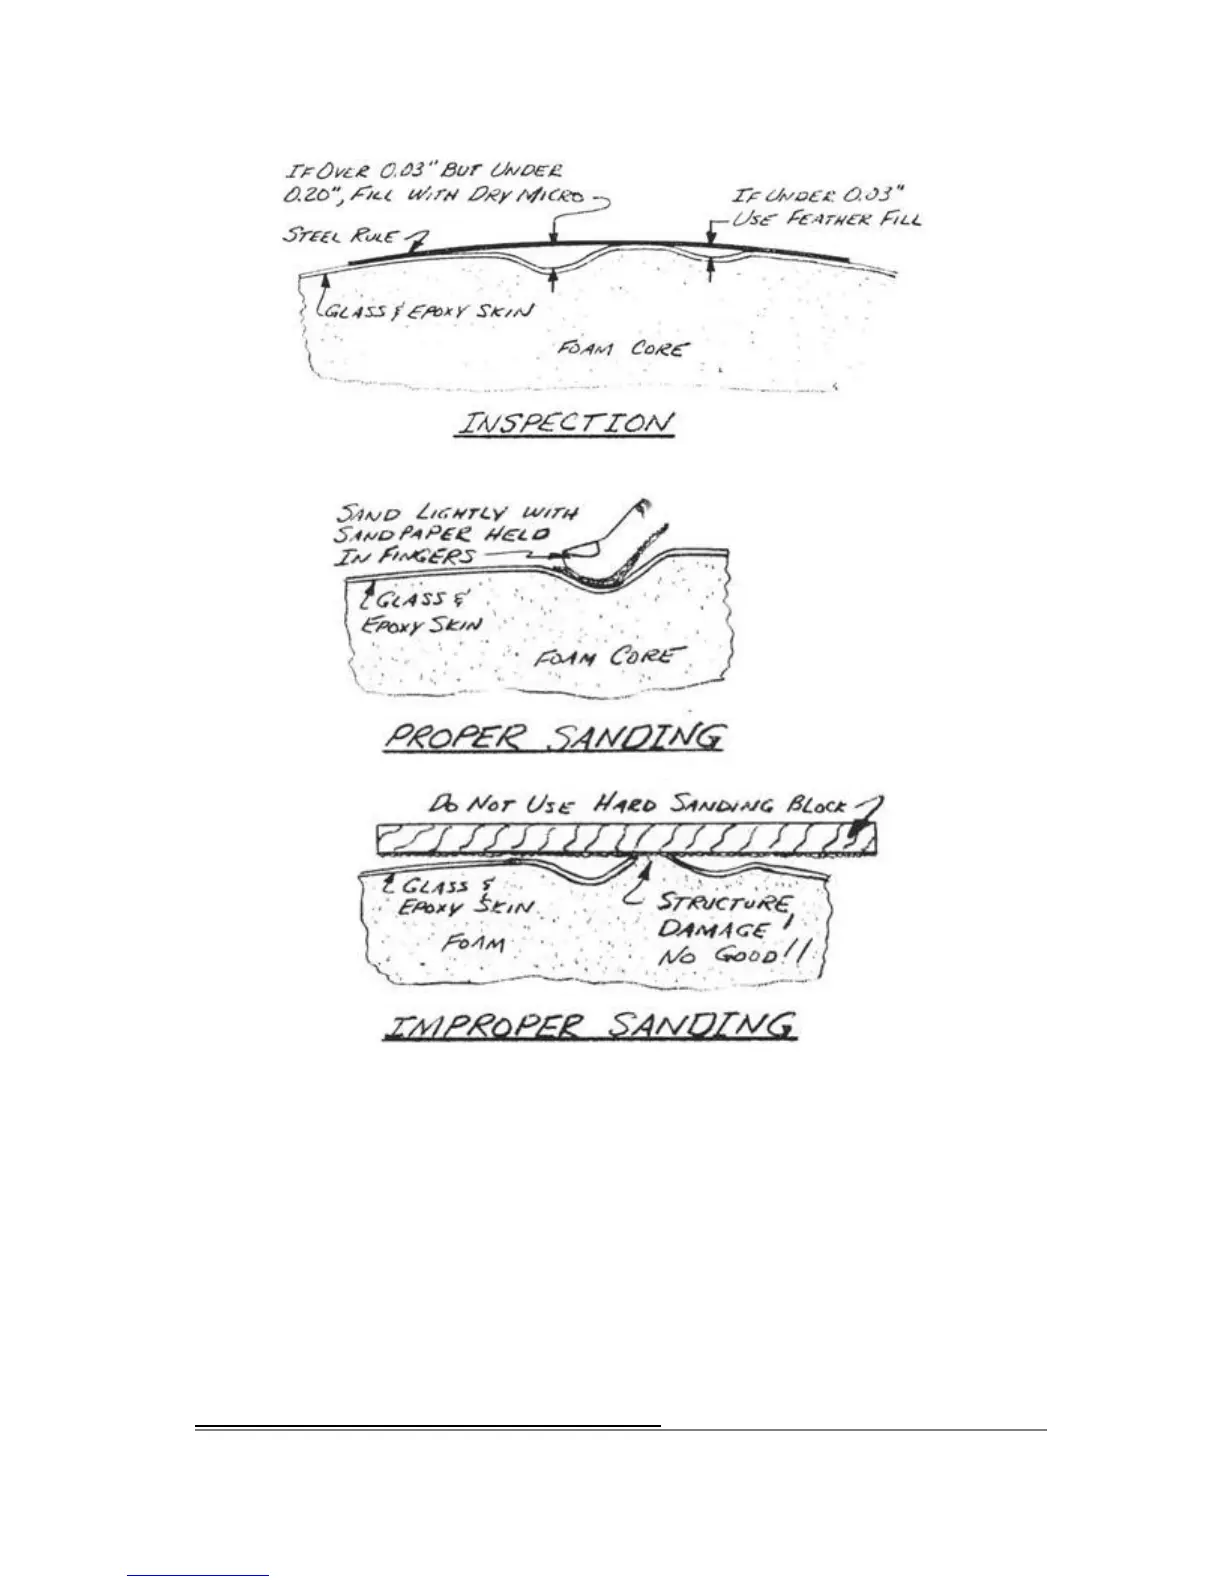 IF OVER 0.03" BUT UNDER
0.20", FILL WITH DRY MICRO
IF UNDER 0.03"
USE FEATHER FILL
STEEL RULE
GLASS & EPOXY SKIN
FOAM CORE
INSPECTION
SAND LIGHTLY WITH
SANDPAPER HELD
IN FINGERS
GLASS &
EPOXY SKIN
FOAM CORE
PROPER SANDING
DO NOT USE HARD SANDING BLOCK
GLASS &
EPOXY SKIN
FOAM
STRUCTURE
DAMAGE!
NO GOOD!!
IMPROPER SANDING